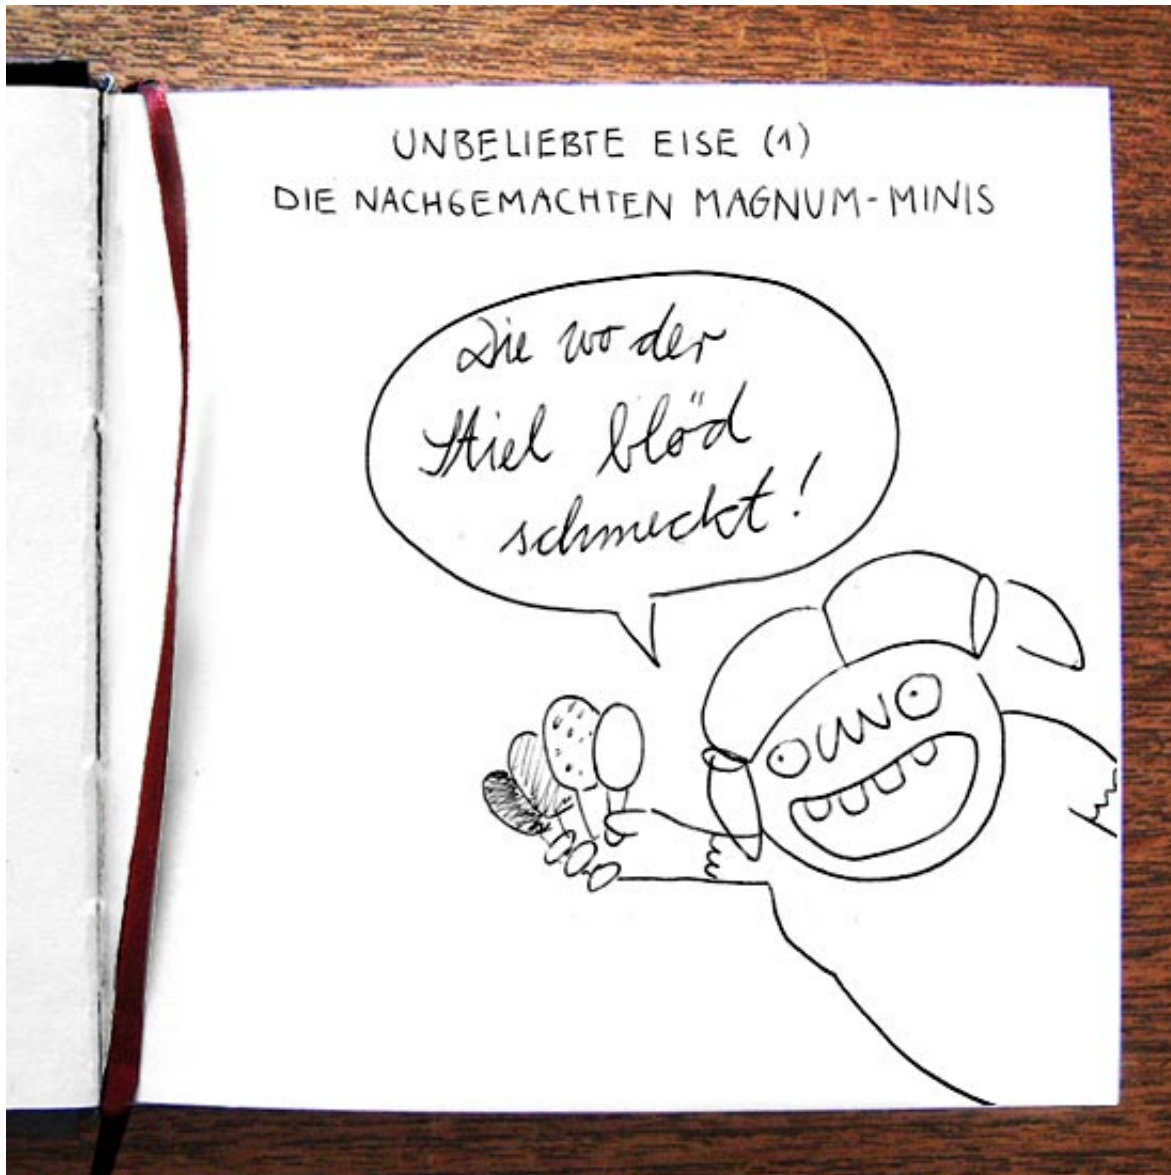 UNBELIEBTE EISE (1)
DIE NACHGEMACHTEN MAGNUM-MINIS
Die wo der
Stiel blöd
schmeckt!